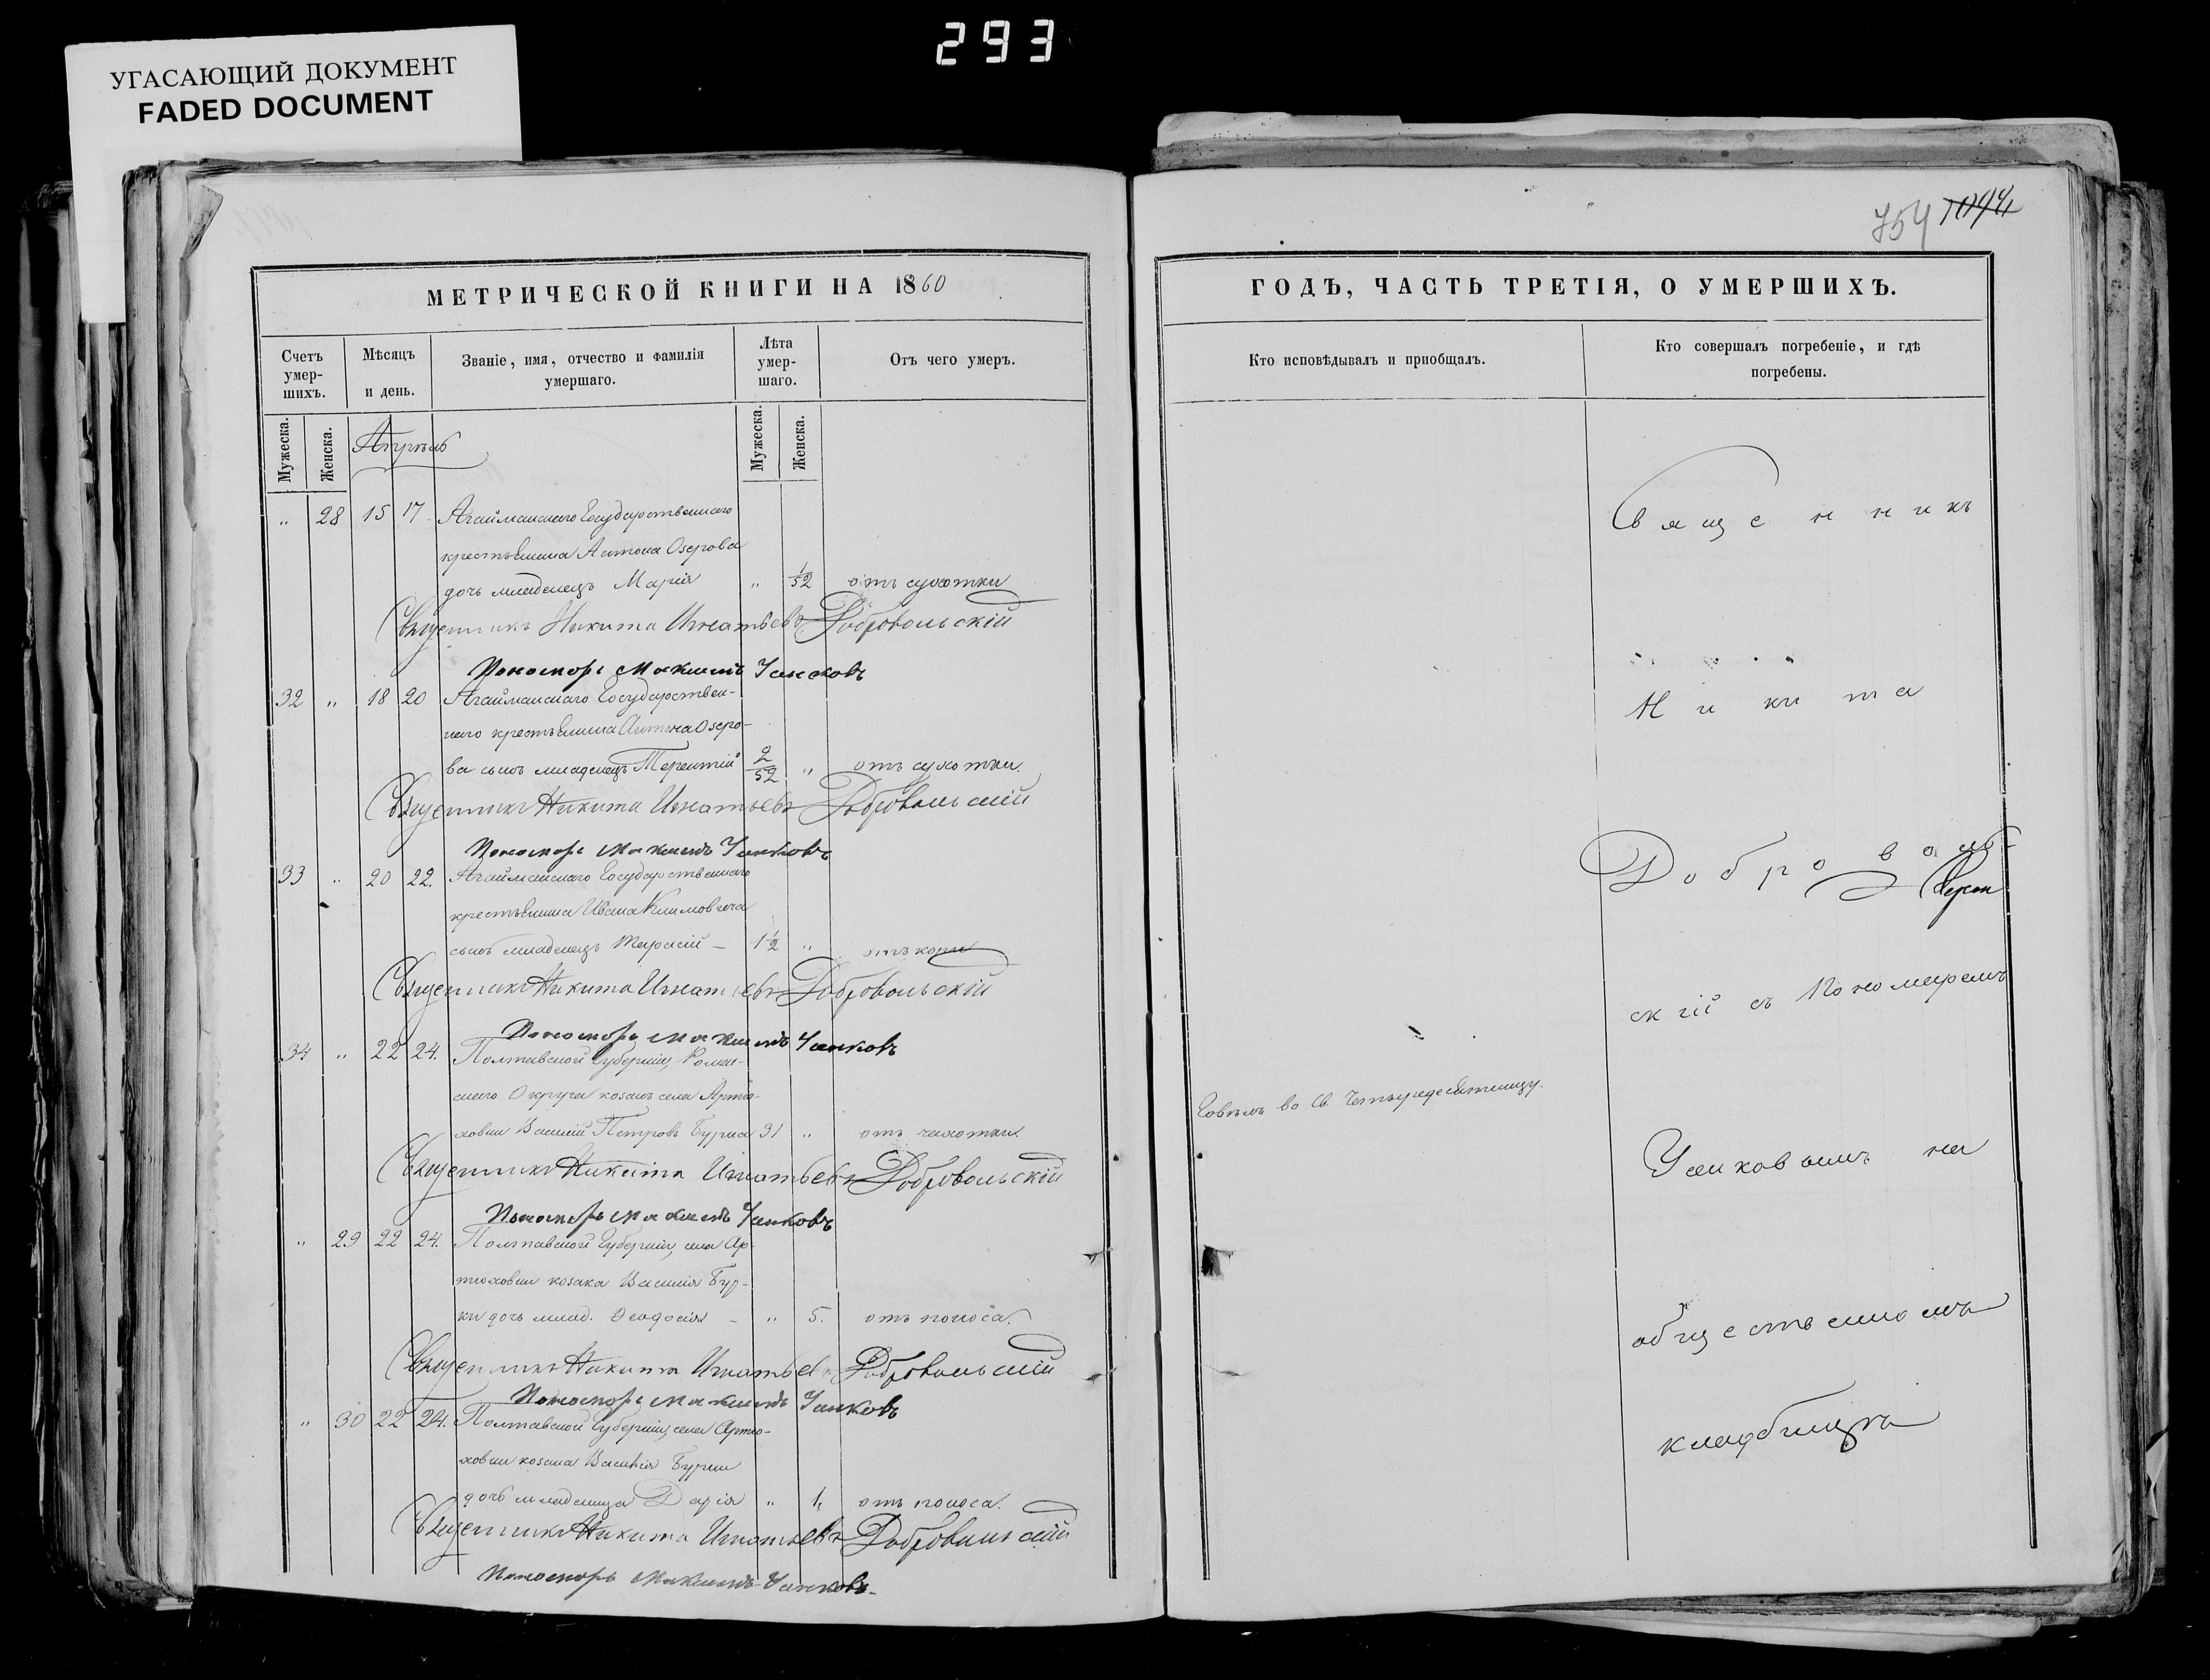 293
УГАСАЮЩИЙ ДОКУМЕНТ
FADED DOCUMENT
МЕТРИЧЕСКОЙ КНИГИ НА 1860
Счетъ умер-шихъ.
Мѣсяцъ и день.
Званіе, имя, отчество и фамилія умершаго.
Лѣта умер-шаго.
Отъ чего умеръ.
Мужеска.
Женска.
Апрѣль
Мужеска.
Женска.
" 28 15 17 Агайманскаго Государственнаго
крестьянина Антона Озерова
дочь младенецъ Марія " 1/52 отъ сухотки
Священникъ Никита Игнатьевъ Добровольскій
Пономарь Максимъ
32 " 18 20 Агайманскаго Государствен-
наго крестьянина Антона Озеро-
ва сынъ младенецъ Терентій 2/52 " отъ сухотки.
Священникъ Никита Игнатьевъ Добровольскій
Пономарь Максимъ
33 " 20 22. Агайманскаго Государственнаго
крестьянина Ивана Климовича
сынъ младенецъ Тарасій – 1 1/2 " отъ кори
Священникъ Никита Игнатьевъ Добровольскій
Пономарь Максимъ
34 " 22 24. Полтавской Губерніи, Ромен-
скаго Округа козакъ села Артю-
ховки Василій Петровъ Бурка 31 " отъ чахотки.
Священникъ Никита Игнатьевъ Добровольскій
Пономарь Максимъ
" 29 22 24. Полтавской Губерніи, села Ар-
тюховки козака Василія Бур-
ки дочь млад. Ѳеодосія – " 5. отъ поноса.
Священникъ Никита Игнатьевъ Добровольскій
Пономарь Максимъ
" 30 22 24. Полтавской Губерніи, села Артю-
ховки козака Василія Бурки
дочь младеница Дарія " 1, отъ поноса.
Священникъ Никита Игнатьевъ Добровольскій
Пономарь Максимъ
754 1094
ГОДЪ, ЧАСТЬ ТРЕТІЯ, О УМЕРШИХЪ.
Кто исповѣдывалъ и приобщалъ.
Кто совершалъ погребеніе, и гдѣ погребены.
Священникъ
Никита
Доброволь-
скій съ Пономаремъ
Говѣлъ во Св. Четыредесятницу.
на
общественномъ
кладбищѣ